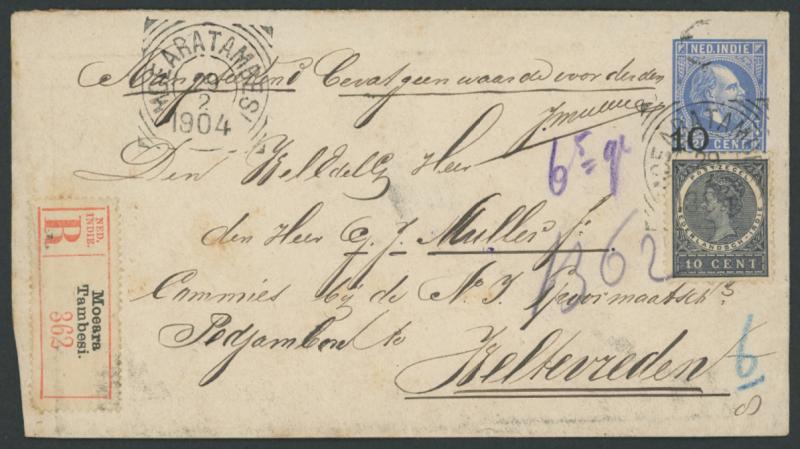 MOEARATAMBESI
29
2
1904
NED. INDIE
10
CENT
Aangeteekend Bevat geen waarde voor derden
Den WelEdelG Heer
6⁵ = gr
den Heer G. J. Muller Jr.
362
POSTZEGEL
NEDERLANDSCH-INDIË
10 CENT
Commies bij de N. I. Spoormaatsch
Pedjambon te
Weltevreden
NED. INDIE.
R
Moeara
Tambesi.
362